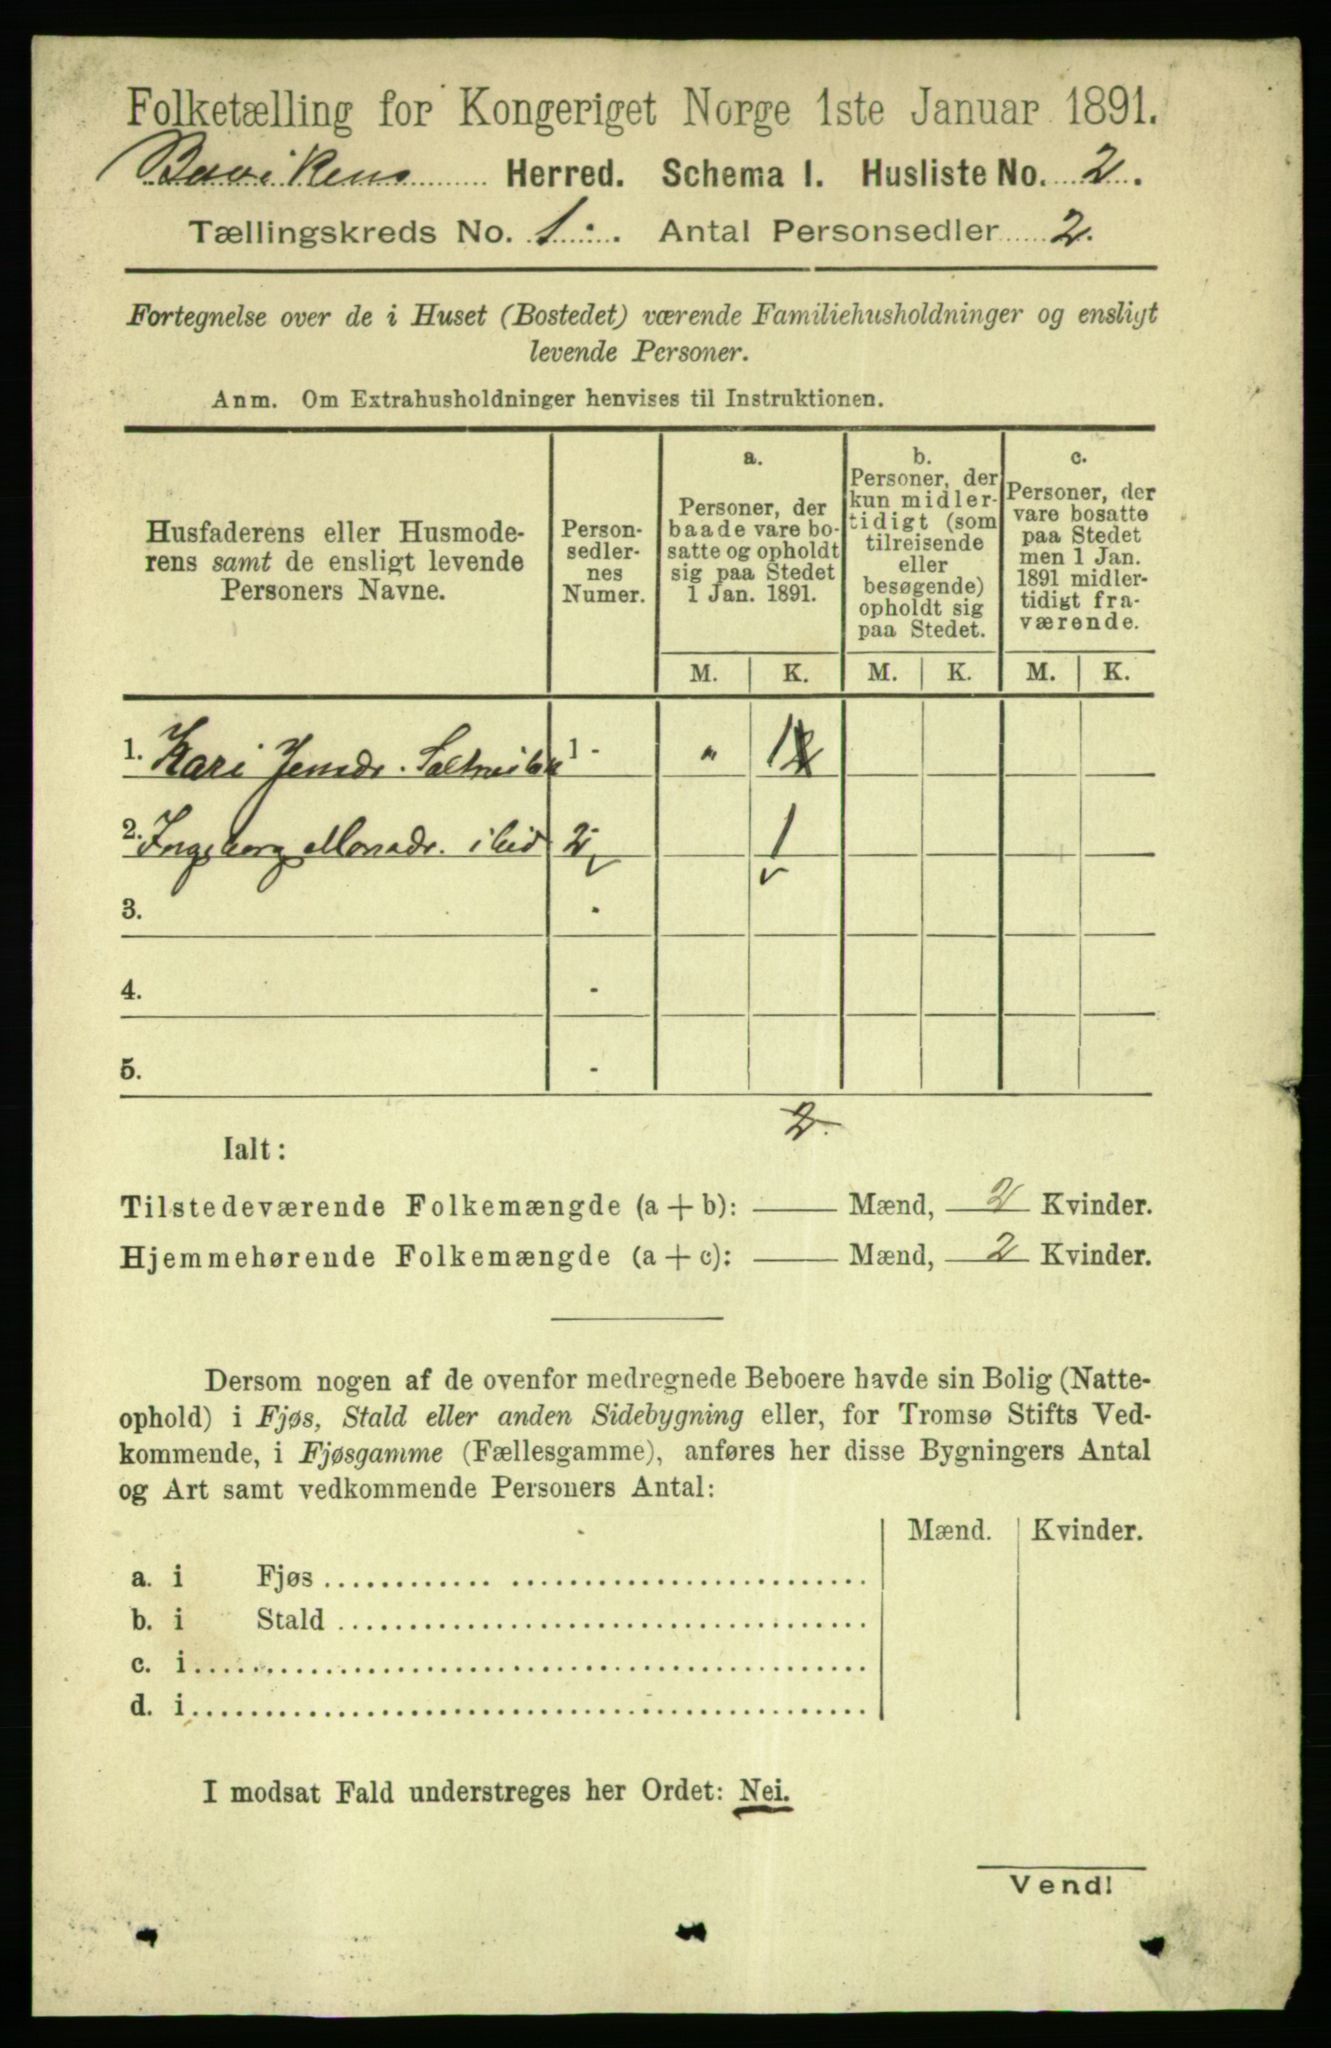 Folketælling for Kongeriget Norge 1ste Januar 1891.
Herred. Schema I. Husliste No. 2.
Tællingskreds No. 1. Antal Personsedler 2.
Fortegnelse over de i Huset (Bostedet) værende Familiehusholdninger og ensligt
levende Personer.
Anm. Om Extrahusholdninger henvises til Instruktionen.
Husfaderens eller Husmode-
rens samt de ensligt levende
Personers Navne.
Person-
sedler-
nes
Numer.
a.
Personer, der
baade vare bo-
satte og opholdt
sig paa Stedet
1 Jan. 1891.
b.
Personer, der
kun midler-
tidigt (som
tilreisende
eller
besøgende)
opholdt sig
paa Stedet.
c.
Personer, der
vare bosatte
paa Stedet
men 1 Jan.
1891 midler-
tidigt fra-
værende.
M. K. M. K. M. K.
1. Kari Jensdr. 1 - " 1
2. Ingeborg Monsdr. ibid 2 - 1
3. -
4. -
5. -
2.
Ialt:
Tilstedeværende Folkemængde (a + b): Mænd, 2 Kvinder.
Hjemmehørende Folkemængde (a + c): Mænd, 2 Kvinder.
Dersom nogen af de ovenfor medregnede Beboere havde sin Bolig (Natte-
ophold) i Fjøs, Stald eller anden Sidebygning eller, for Tromsø Stifts Ved-
kommende, i Fjøsgamme (Fællesgamme), anføres her disse Bygningers Antal
og Art samt vedkommende Personers Antal:
Mænd. Kvinder.
a. i Fjøs
b. i Stald
c. i
d. i
I modsat Fald understreges her Ordet: Nei.
Vend!